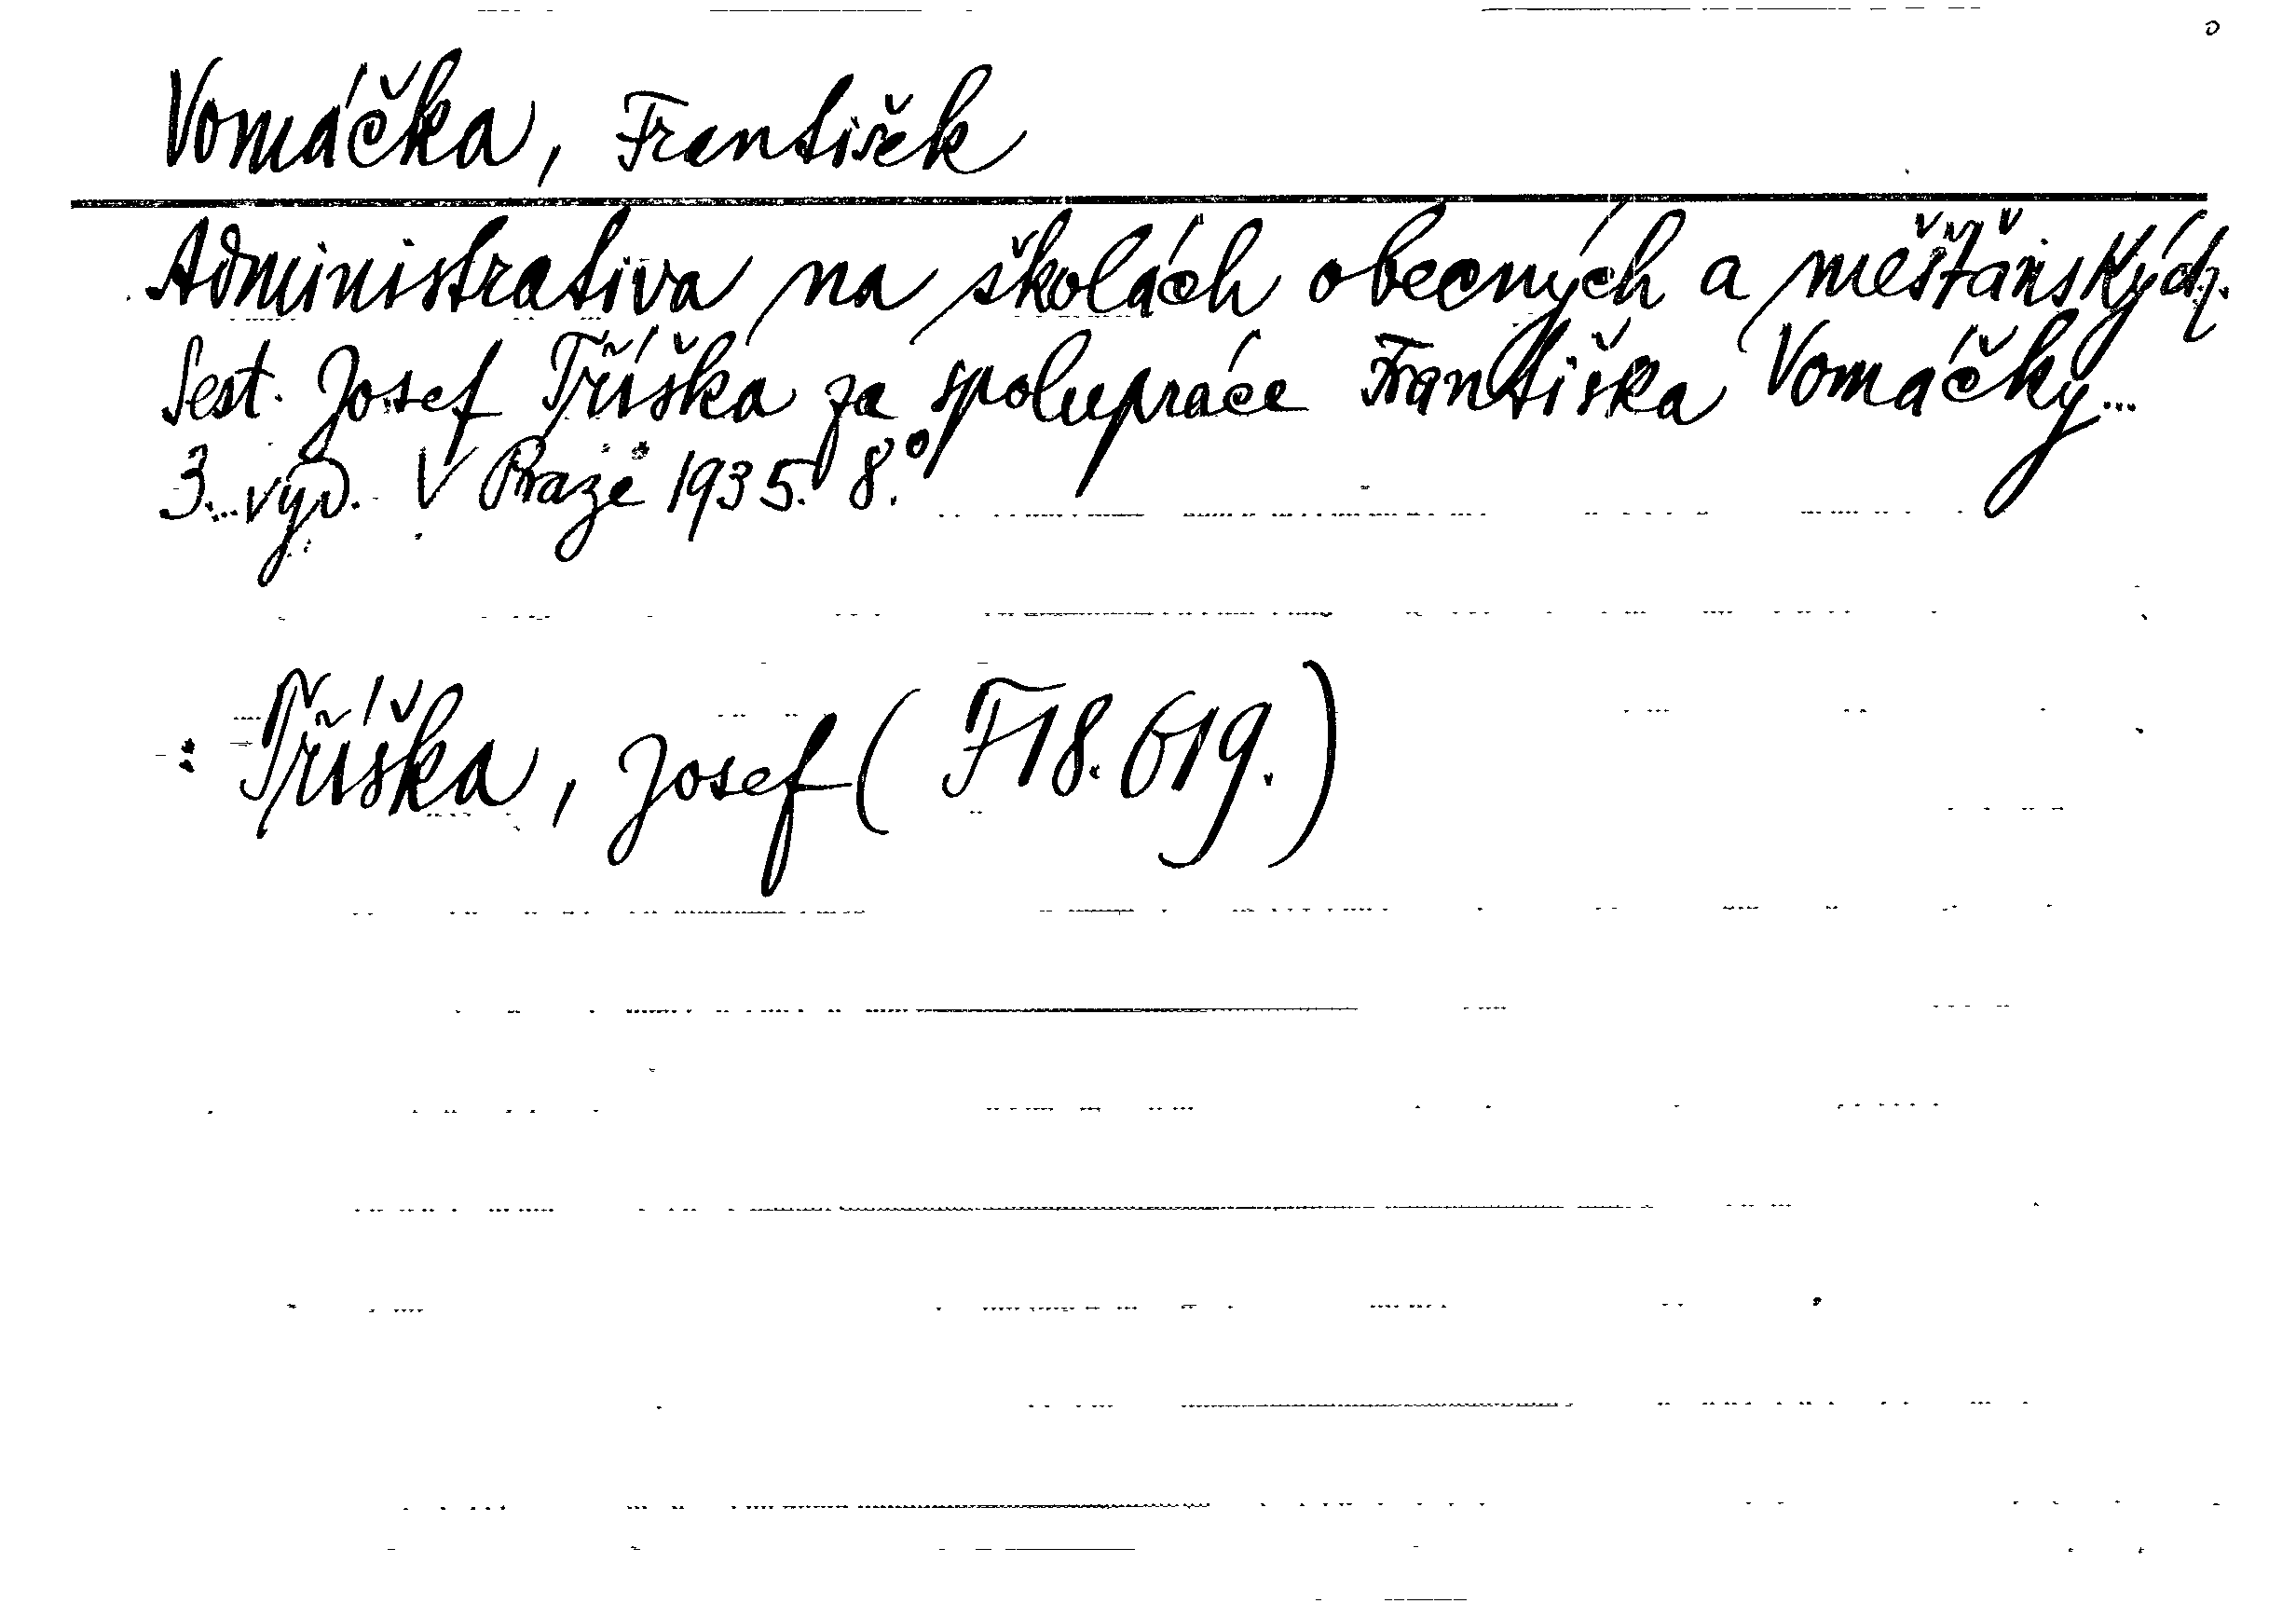 Vomáčka, František
Administrativa na školách obecných a měšťanských.
Sest. Josef Tříška za spolupráce Františka Vomáčky...
3. vyd. V Praze 1935. 8.°
: Tříška, Josef (F 18.619.)